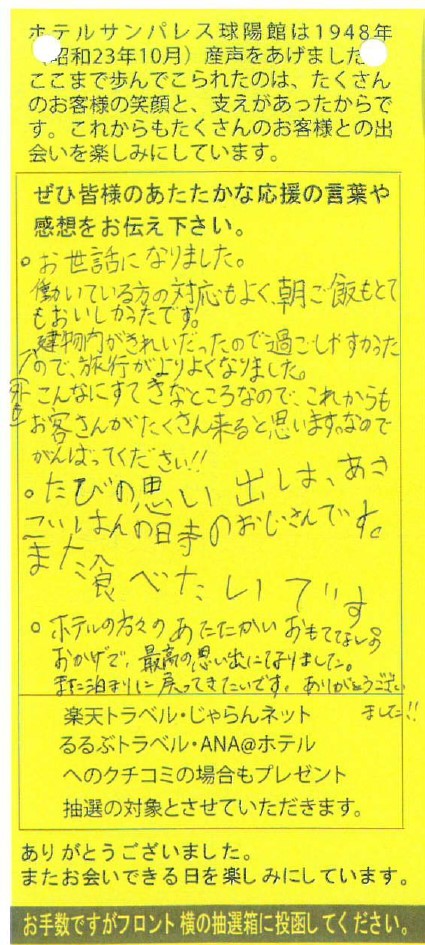 ホテルサンパレス球陽館は1948年
(昭和23年10月)産声をあげました
ここまで歩んでこられたのは、たくさん
のお客様の笑顔と、支えがあったからで
す。これからもたくさんのお客様との出
会いを楽しみにしています。
ぜひ皆様のあたたかな応援の言葉や
感想をお伝え下さい。
○お世話になりました。
働いている方の対応もよく、朝ご飯もとて
もおいしかったです。
建物内がきれいだったので過ごしやすかった
ので、旅行がよりよくなりました。
こんなにすてきなところなので、これからも
お客さんがたくさん来ると思います。なので
がんばってください!!
○たびの思い出しは、あさ
ごはんの時のおじさんです。
また食べたいです
○ホテルの方々のあたたかいおもてなしの
おかげで、最高の思い出になりました。
また泊まりに戻ってきたいです。ありがとうござい
ました!!
楽天トラベル・じゃらんネット
るるぶトラベル・ANA@ホテル
へのクチコミの場合もプレゼント
抽選の対象とさせていただきます。
ありがとうございました。
またお会いできる日を楽しみにしています。
お手数ですがフロント横の抽選箱に投函してください。